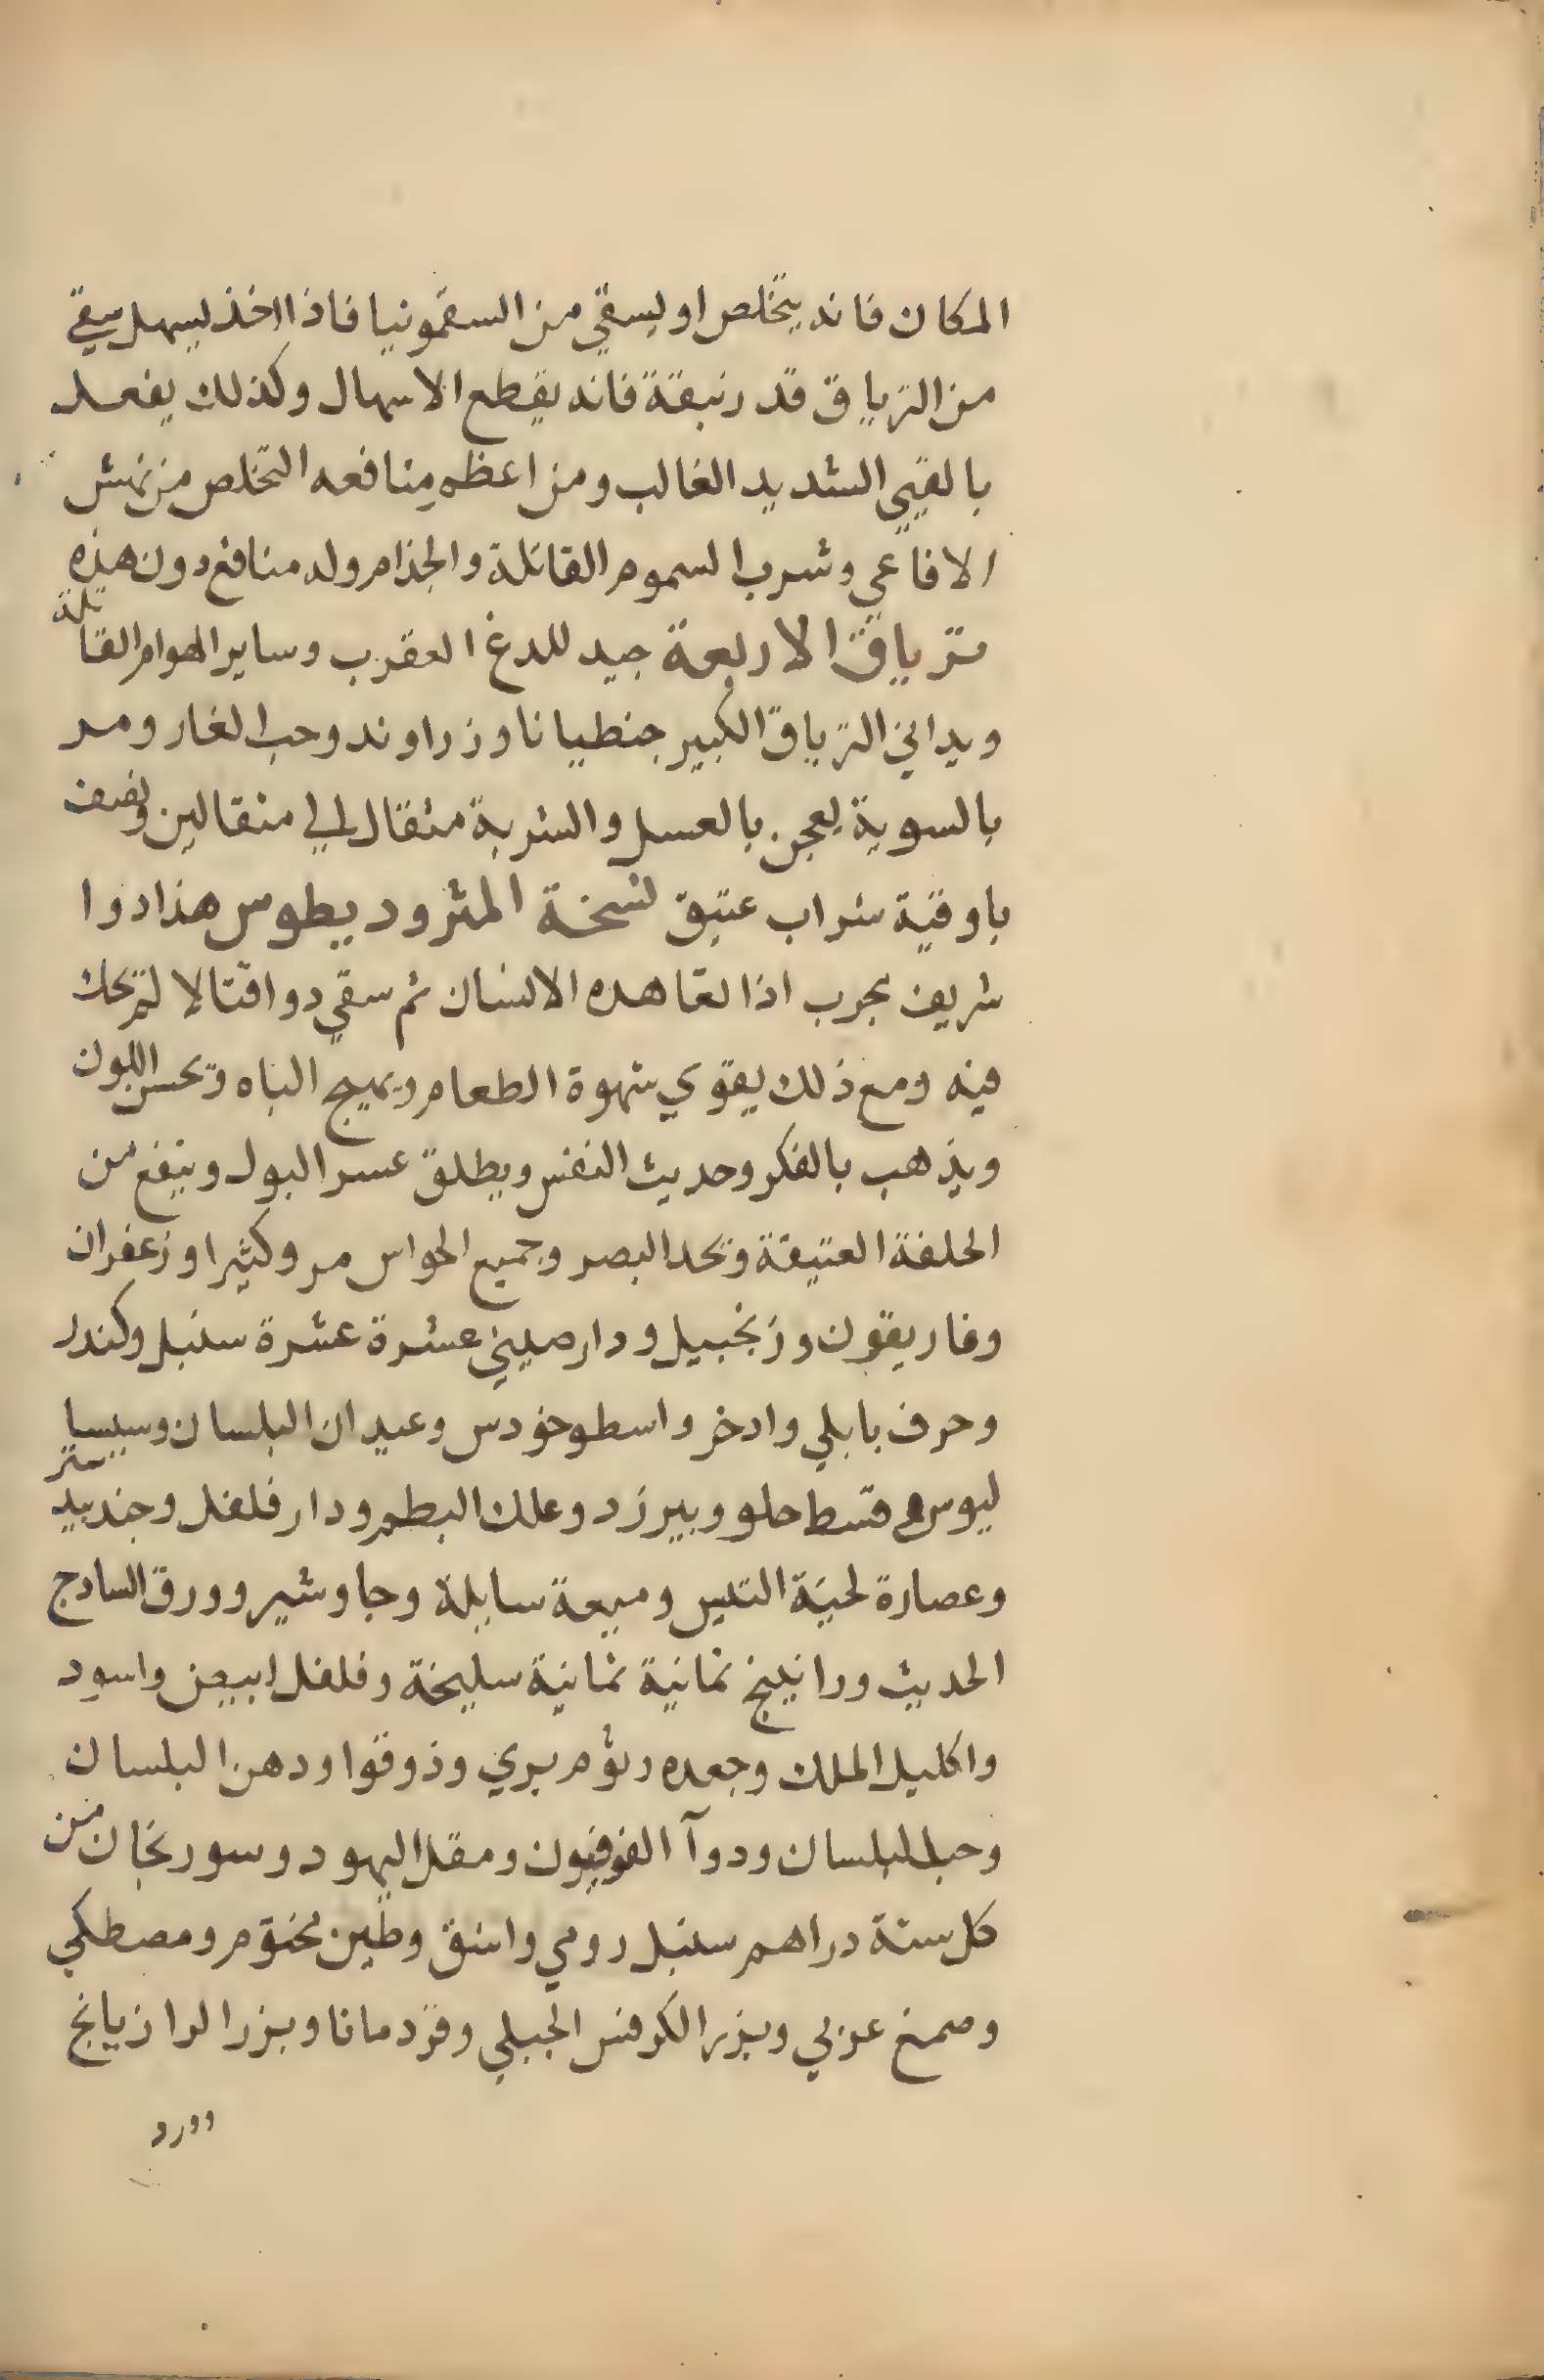 المكان فانه يتخلص او ليسقي من السقمونيا فاذا اخذ ليسهل سقي
من الترياق قدر نبقة فانه يقطع الاسهال وكذلك يفعل
بالقيي الشديد الغالب ومن اعظم منافعه التخلص من نهش
الافاعي وشرب السموم القاتلة والجذام وله منافع دون هذه
ترياق الاربعة جيد للدغ العقرب وساير الهوام القاتلة
ويداني الترياق الكبير جنطيانا وزراوند وحب الغار ومر
بالسوية يعجن بالعسل والشربة مثقال الي مثقالين ونصف
باوقية شراب عتيق نسخة المثروديطوس هذا دوا
شريف مجرب اذا تعاهده الانسان ثم سقي دوا قتالا لم تحك
فيه ومع ذلك يقوي شهوة الطعام ويهيج الباه وتحسن اللون
ويذهب بالفكر وحديث النفس ويطلق عسر البول وينفع من
الخلفة العتيقة وتحد البصر وجميع الحواس مر وكثيرا وزعفران
وغاريقون وزنجبيل ودارصيني عشرة عشرة سنبل وكندر
وحرف بابلي وادخر واسطوخودس وعيدان البلسان وسيسا
ليوس قسط حلو وبيرزد وعلك البطم ودار فلفل وجندبيدستر
وعصارة لحية التيس وميعة سايلة وجاوشير وورق السادج
الحديث وراتينج ثمانية ثمانية سليخة وفلفل ابيض واسود
واكليل الملك وجعده وثوم بري وذوقوا ودهن البلسان
وحب البلسان ودوآ القوفيون ومقل اليهود وسورنجان من
كل ستة دراهم سنبل رومي واشق وطين مختوم ومصطكي
وصمغ عربي وبزر الكرفس الجبلي وقردمانا وبزر الرازيانج
وورد